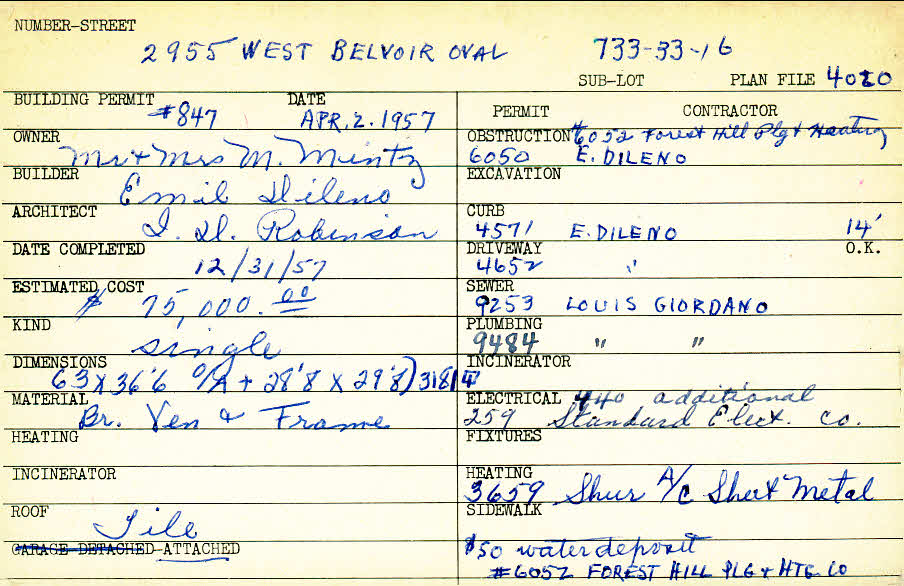 NUMBER-STREET
2955 WEST BELVOIR OVAL 733-33-16
SUB-LOT PLAN FILE 4020
BUILDING PERMIT #847 DATE APR. 2. 1957
OWNER Mr + Mrs M. Mintz
BUILDER Emil Dileno
ARCHITECT I. D. Robinson
DATE COMPLETED 12/31/57
ESTIMATED COST $ 75,000.00
KIND single
DIMENSIONS 63 x 36'6 O/A + 28'8 x 29'8) 3181
MATERIAL Br. Ven & Frame
HEATING
INCINERATOR
ROOF Tile
GARAGE-DETACHED-ATTACHED
PERMIT CONTRACTOR
OBSTRUCTION #6052 Forest Hill Plg + Heating
6050 E. DILENO
EXCAVATION
CURB
4571 E. DILENO 14'
DRIVEWAY O.K.
4652 "
SEWER
9253 LOUIS GIORDANO
PLUMBING
9484 " "
INCINERATOR
ELECTRICAL 440 additional
259 Standard Elect. Co.
FIXTURES
HEATING
3659 Shur A/C Sheet Metal
SIDEWALK
$50 water deposit
#6052 FOREST HILL PLG + HTG. CO